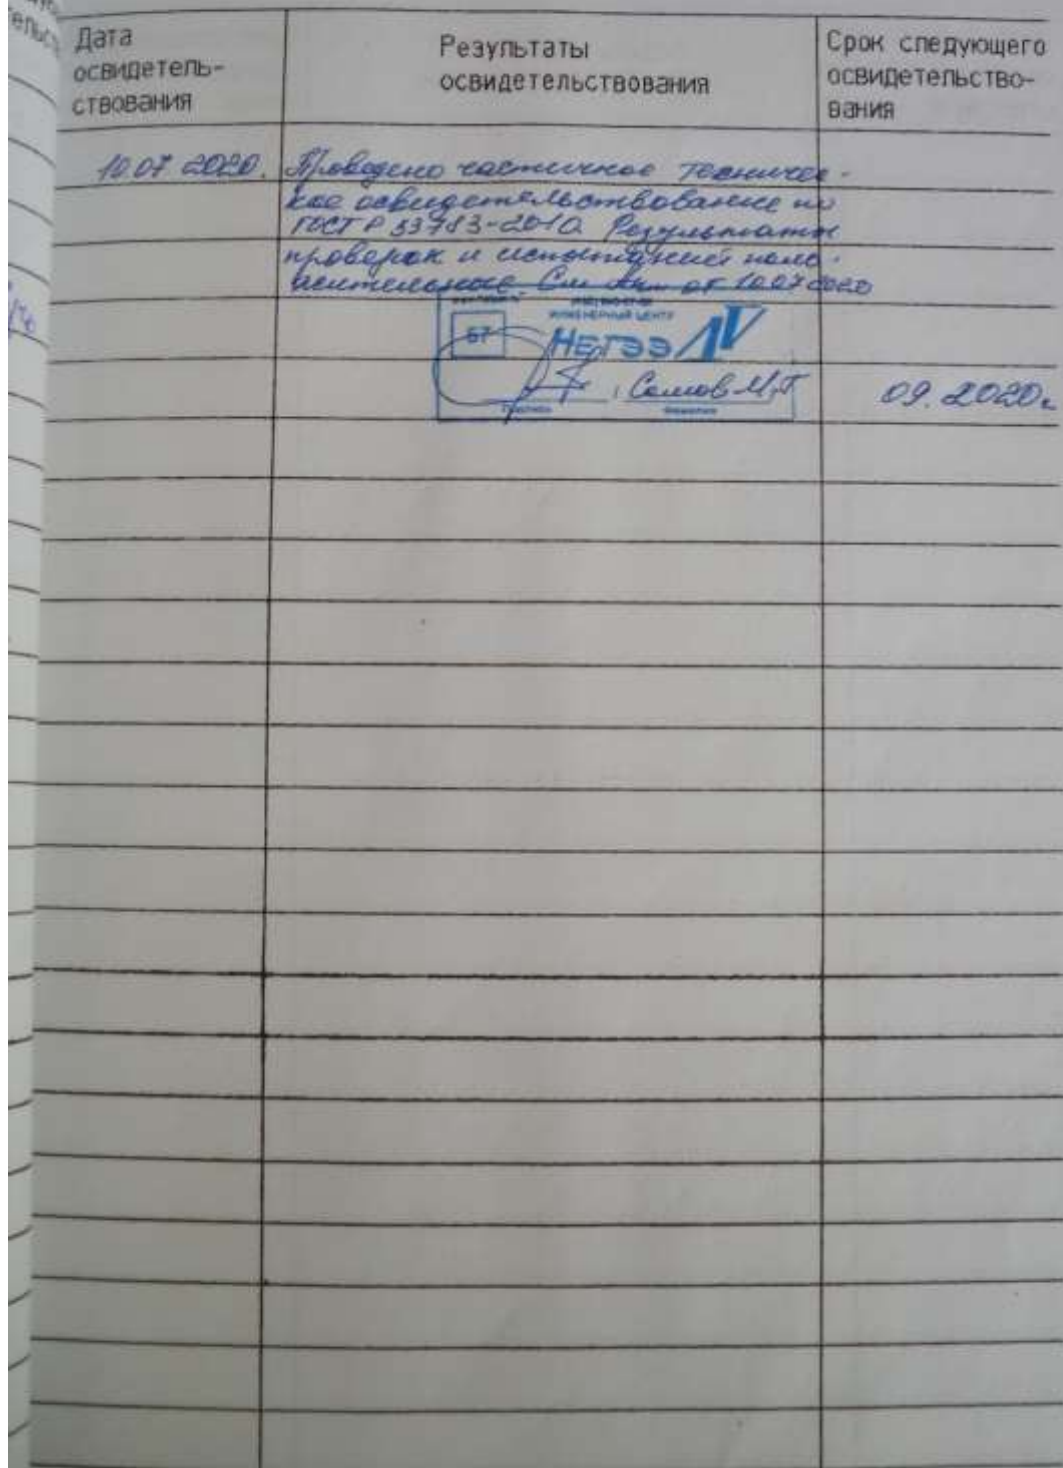 Дата
освидетель-
ствования
Результаты
освидетельствования
Срок следующего
освидетельство-
вания
10.07 2020. Проведено частичное техничес-
кое освидетельствование по
ГОСТ Р 53783-2010. Результаты
проверок и испытаний поло-
жительные См Акт от 10.07 2020
ИНЖЕНЕРНЫЙ ЦЕНТР
57
НЕТЭЭЛ
Самов М.Г
09. 2020г
подпись фамилия